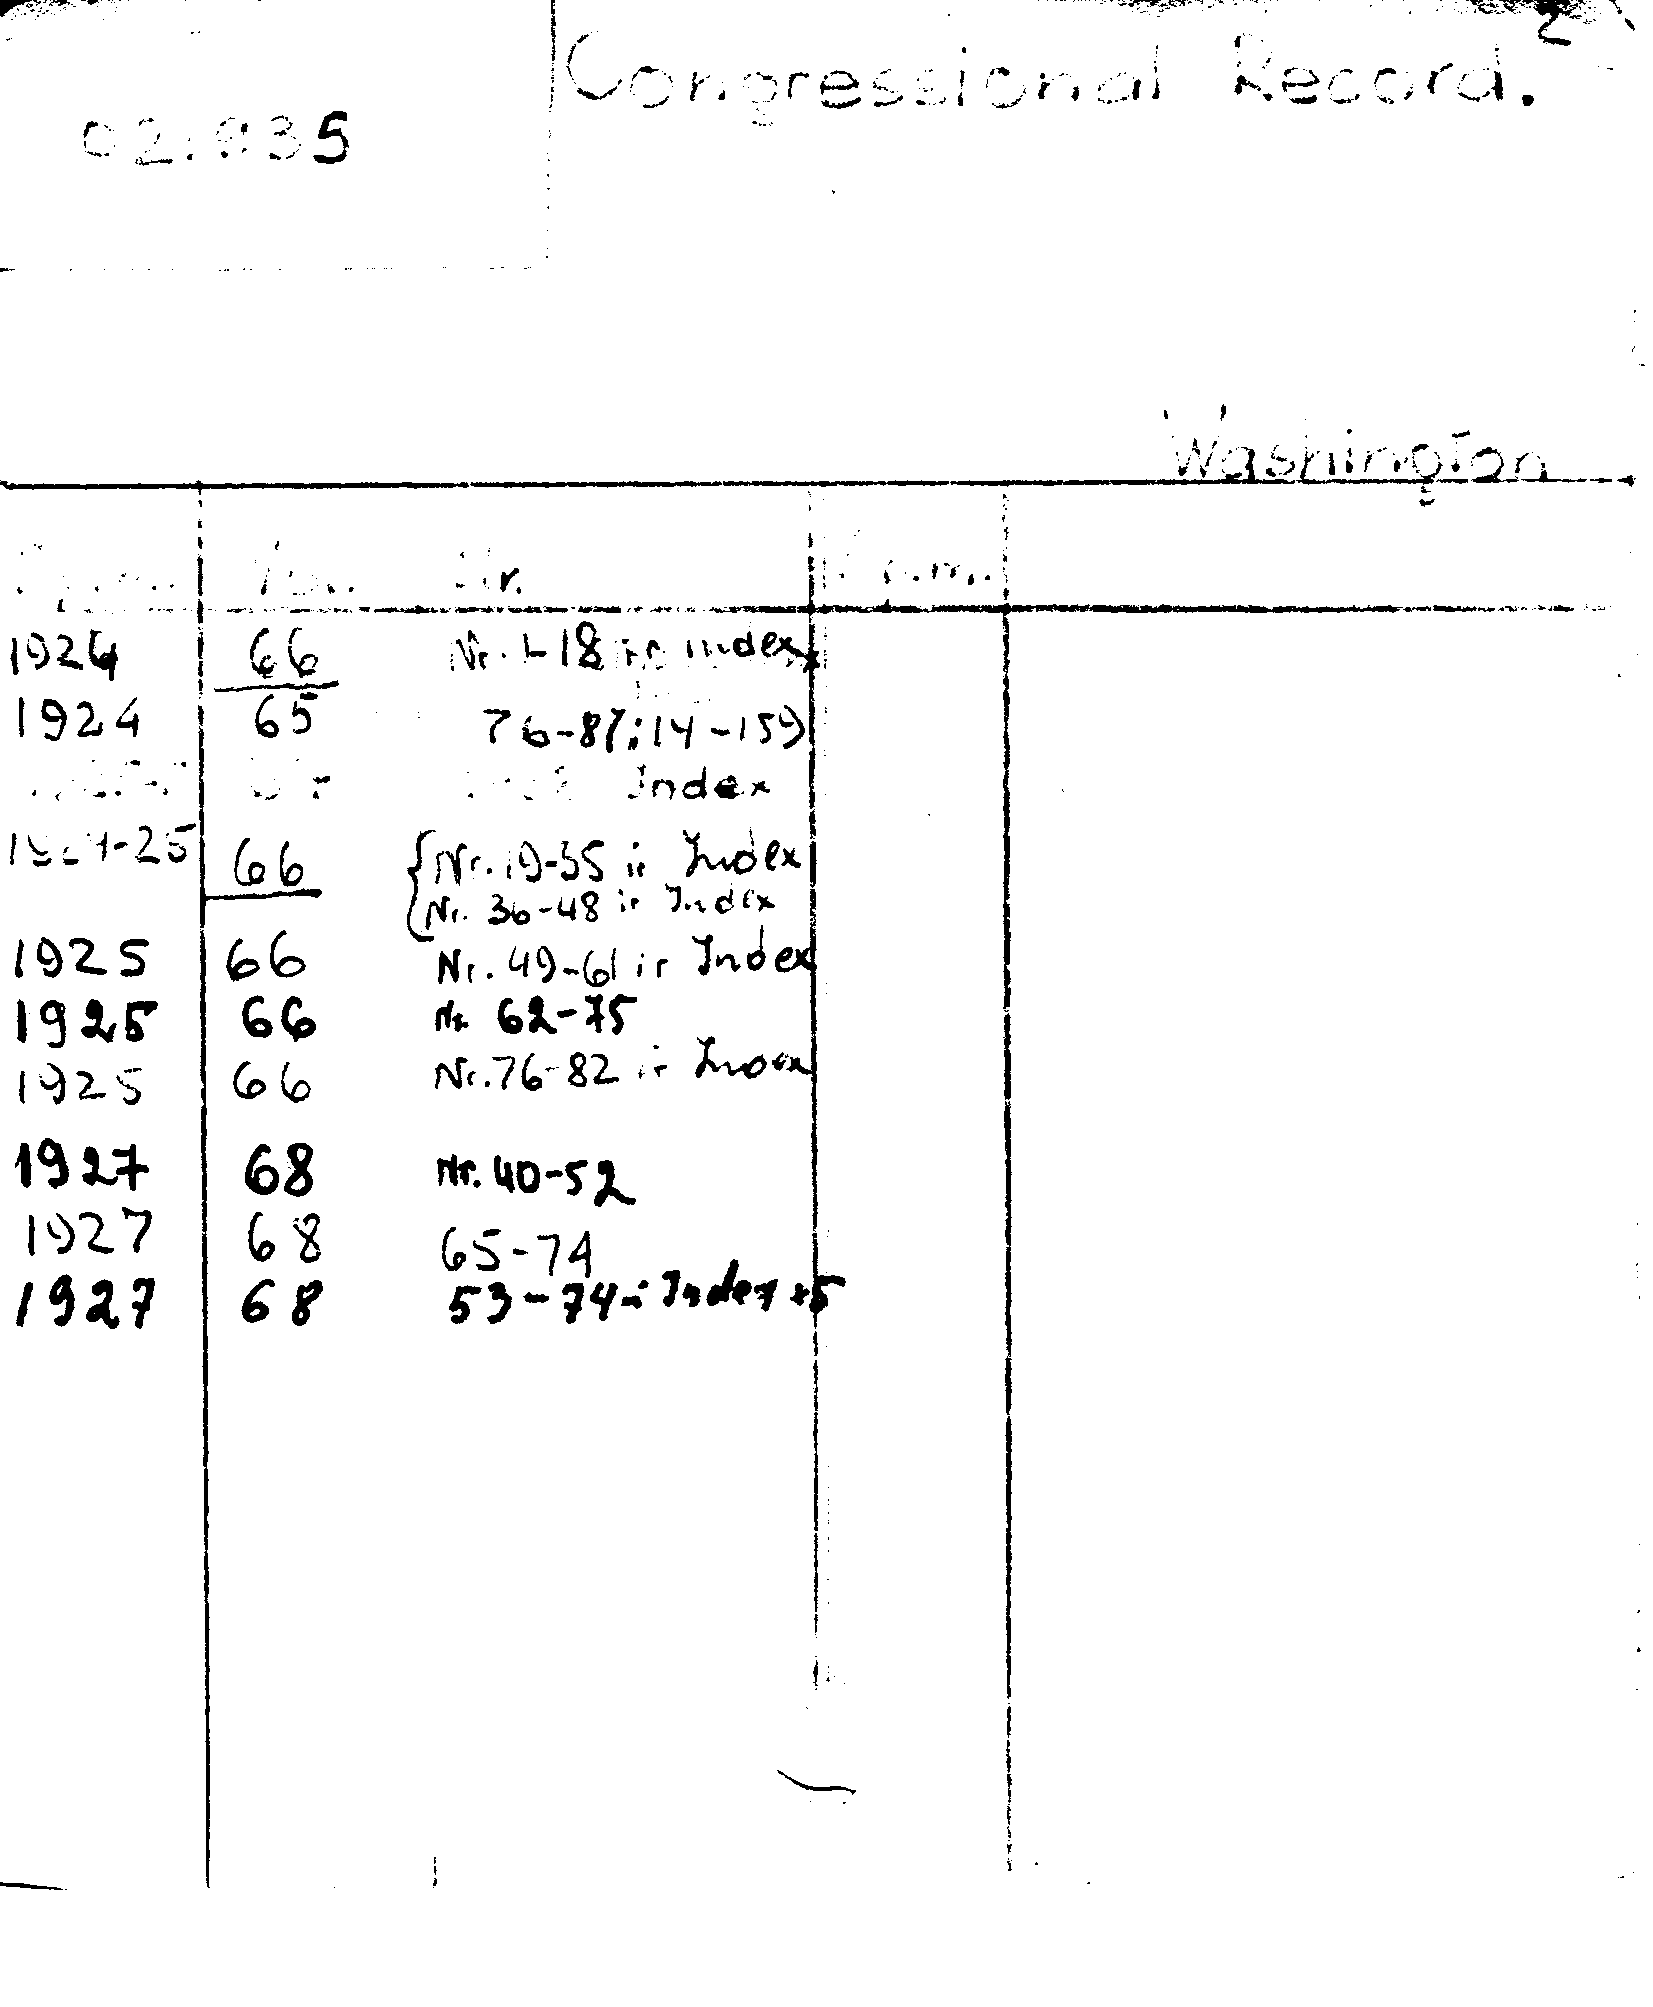 2
Congressional Record.
02.
Washington
Nr.
1924 66 Nr. 1-18 ir index
1924 65 76-87; 14-159
Index
1924-25 66 Nr. 19-35 ir Index
Nr. 36-48 ir Index
1925 66 Nr. 49-61 ir Index
1925 66 Nr 62-75
1925 66 Nr. 76-82 ir Index
1927 68 Nr. 40-52
1927 68 65-74
1927 68 53-74 - Index